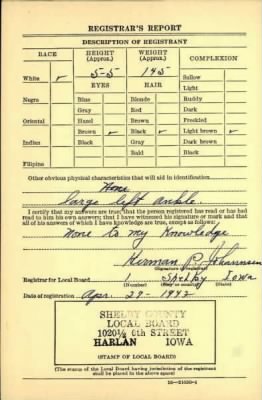 REGISTRAR'S REPORT
DESCRIPTION OF REGISTRANT
RACE HEIGHT (Approx.) WEIGHT (Approx.) COMPLEXION
White ✓ 5-5 145 Sallow
Light
EYES HAIR
Negro Blue Blonde Ruddy
Gray Red Dark
Oriental Hazel Brown Freckled
Brown ✓ Black ✓ Light brown ✓
Indian Black Gray Dark brown
Bald Black
Filipino
Other obvious physical characteristics that will aid in identification
None
large left ankle.
I certify that my answers are true; that the person registered has read or has had read to him his own answers; that I have witnessed his signature or mark and that all of his answers of which I have knowledge are true, except as follows:
None to my Knowledge
Herman R. Johannsen
(Signature of registrar)
Registrar for Local Board 1 Shelby Iowa
(Number) (City or county) (State)
Date of registration Apr. 27-1942
SHELBY COUNTY
LOCAL BOARD
1020½ 6th STREET
HARLAN IOWA
(STAMP OF LOCAL BOARD)
(The stamp of the Local Board having jurisdiction of the registrant
shall be placed in the above space)